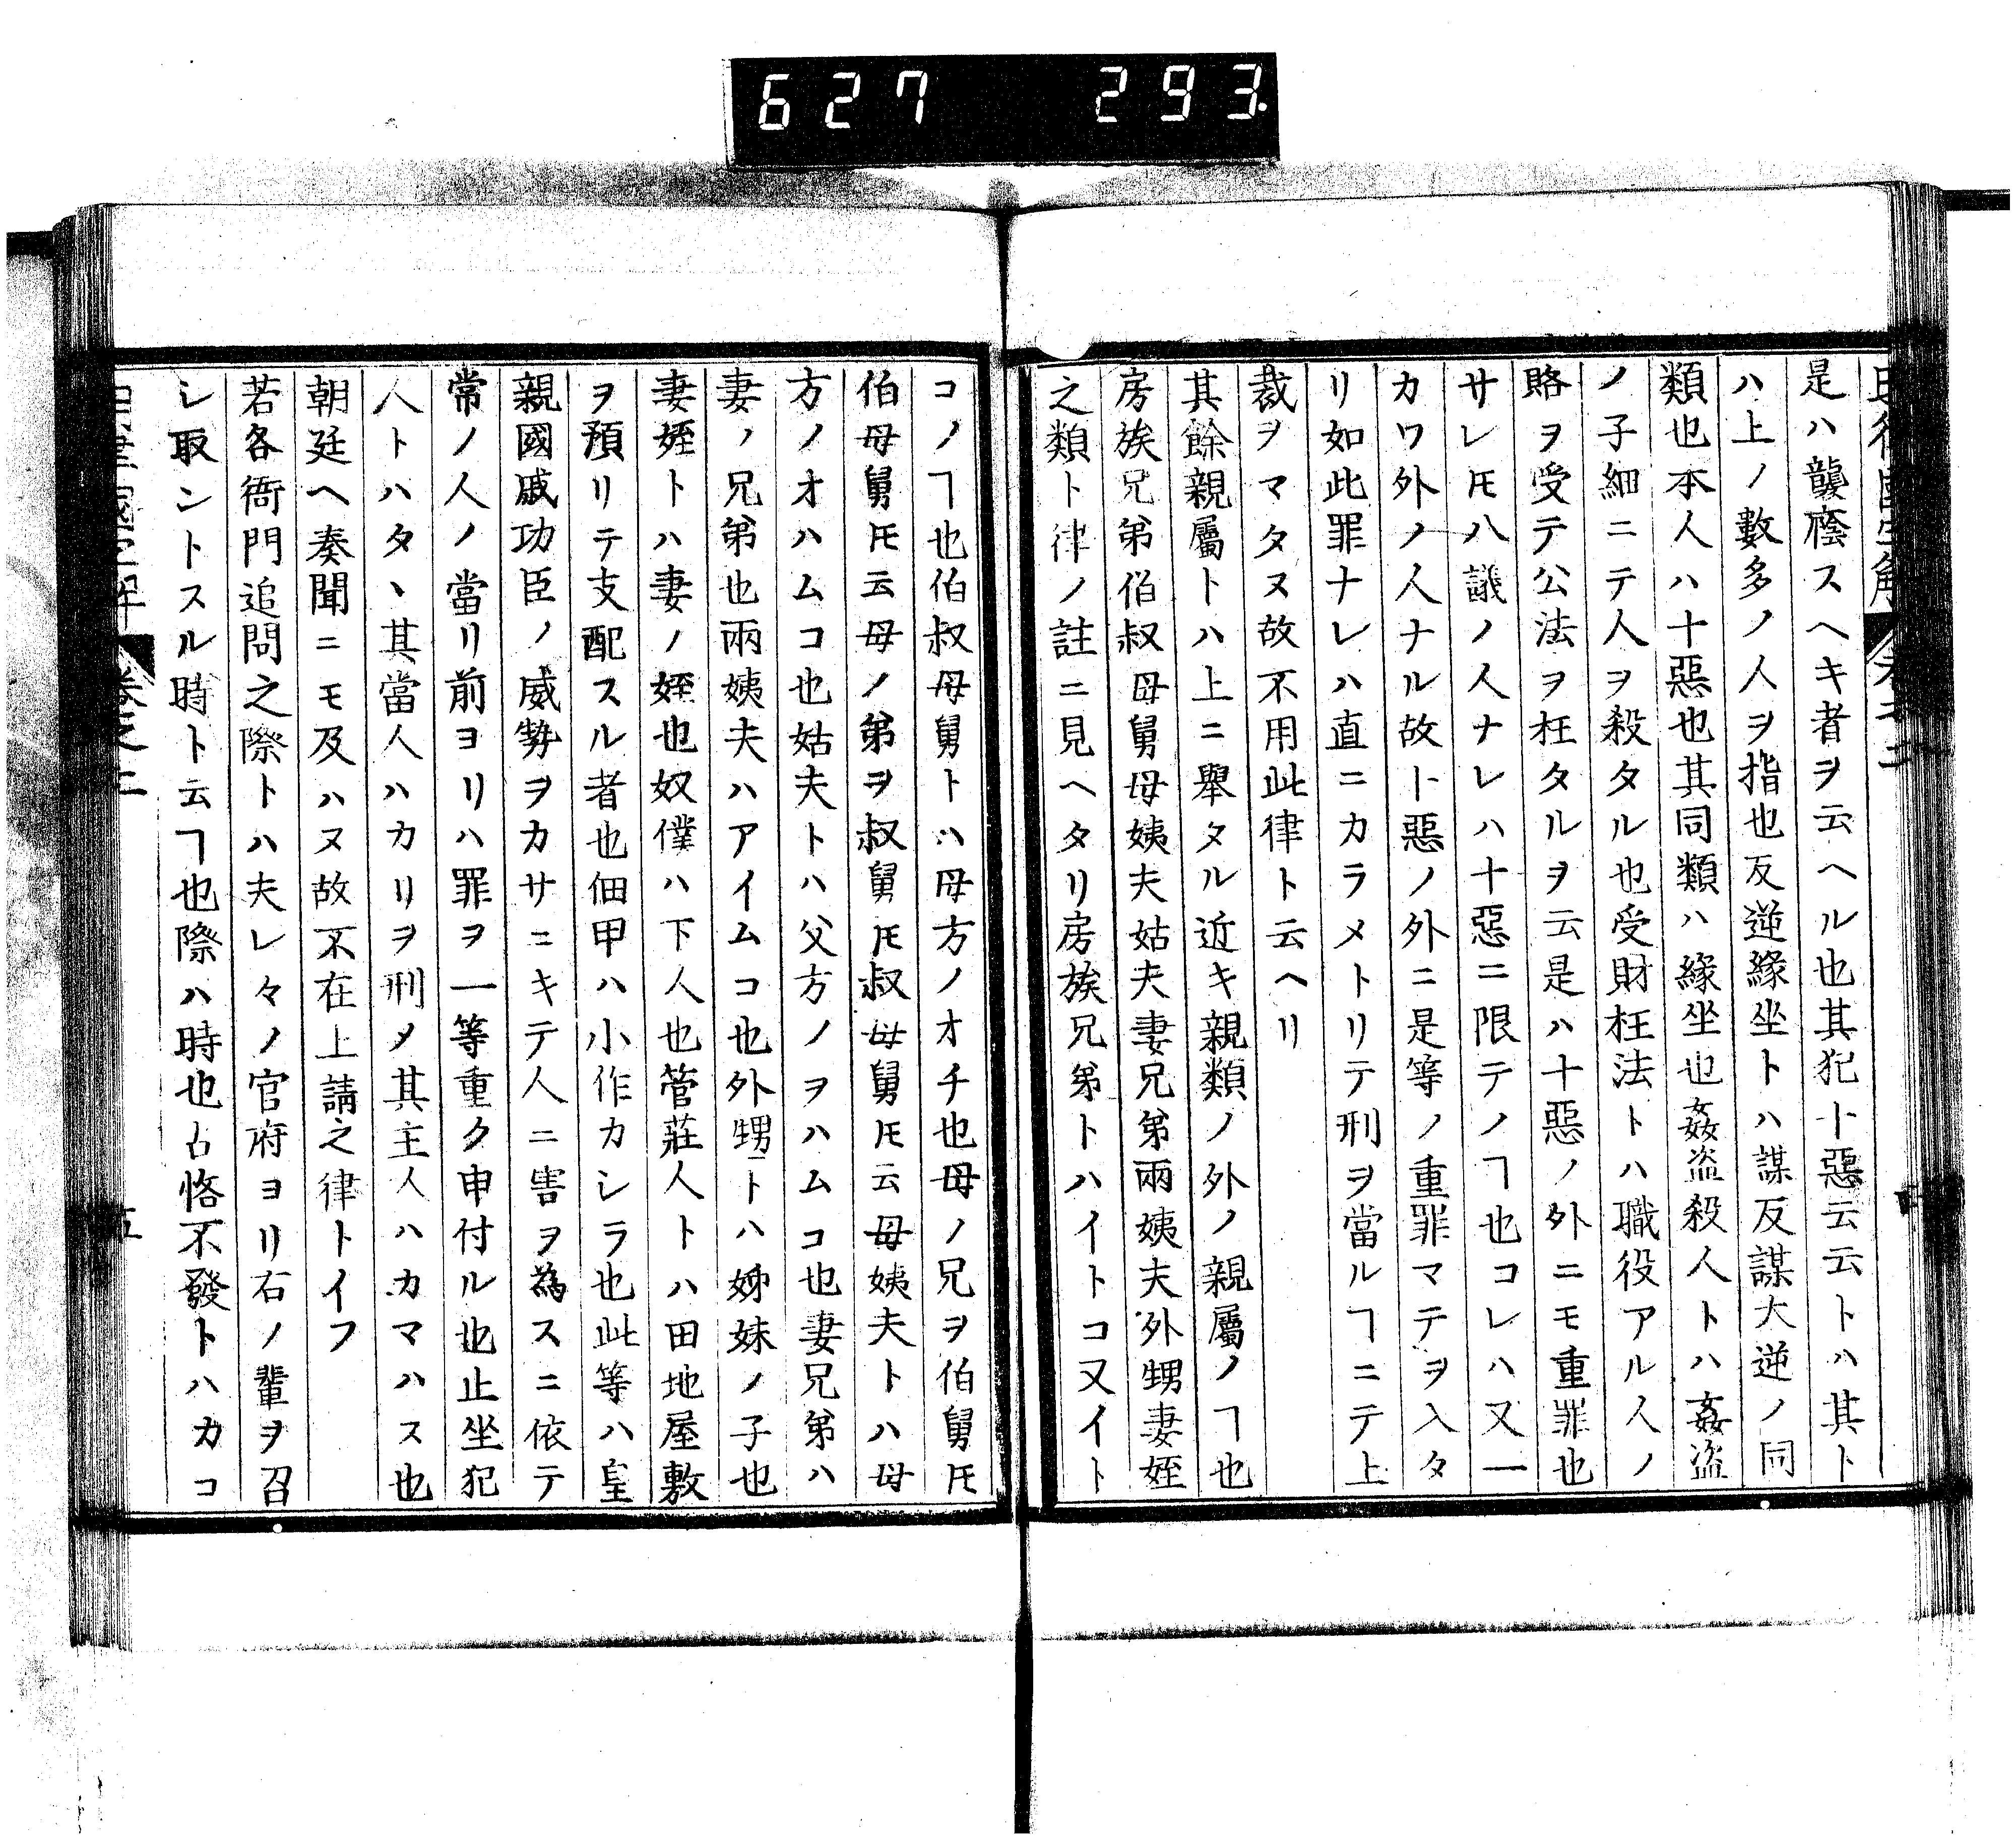 627 293.
是ハ襲廕スヘキ者ヲ云ヘル也其犯十惡云云トハ其ト
ハ上ノ數多ノ人ヲ指也反逆緣坐トハ謀反謀大逆ノ同
類也本人ハ十惡也其同類ハ緣坐也姦盗殺人トハ姦盗
ノ子細ニテ人ヲ殺タル也受財枉法トハ職役アル人ノ
賂ヲ受テ公法ヲ枉タルヲ云是ハ十惡ノ外ニモ重罪也
サレㇳモ八議ノ人ナレハ十惡ニ限テノヿ也コレハ又一
カワ外ノ人ナル故ト惡ノ外ニ是等ノ重罪マテヲ入タ
リ如此罪ナレハ直ニカラメトリテ刑ヲ當ルヿニテ上
裁ヲマタヌ故不用此律ト云ヘリ
其餘親屬トハ上ニ舉タル近キ親類ノ外ノ親屬ノヿ也
房族兄弟伯叔母舅母姨夫姑夫妻兄弟兩姨夫外甥妻姪
之類ト律ノ註ニ見ヘタリ房族兄弟トハイトコ又イト
コノヿ也伯叔母舅トハ母方ノオチ也母ノ兄ヲ伯舅𪜈
伯母舅𪜈云母ノ弟ヲ叔舅𪜈叔母舅𪜈云母姨夫トハ母
方ノオハムコ也姑夫トハ父方ノヲハムコ也妻兄弟ハ
妻ノ兄弟也兩姨夫ハアイムコ也外甥トハ姊妹ノ子也
妻姪トハ妻ノ姪也奴僕ハ下人也管莊人トハ田地屋敷
ヲ預リテ支配スル者也佃甲ハ小作カシラ也此等ハ皇
親國戚功臣ノ威勢ヲカサニキテ人ニ害ヲ為スニ依テ
常ノ人ノ當リ前ヨリハ罪ヲ一等重ク申付ル也止坐犯
人トハタヽ其當人ハカリヲ刑メ其主人ハカマハス也
朝廷ヘ奏聞ニモ及ハヌ故不在上請之律トイフ
若各衙門追問之際トハ夫レ々ノ官府ヨリ右ノ輩ヲ召
シ取ントスル時ト云ヿ也際ハ時也占恡不發トハカコ
卷之二
五